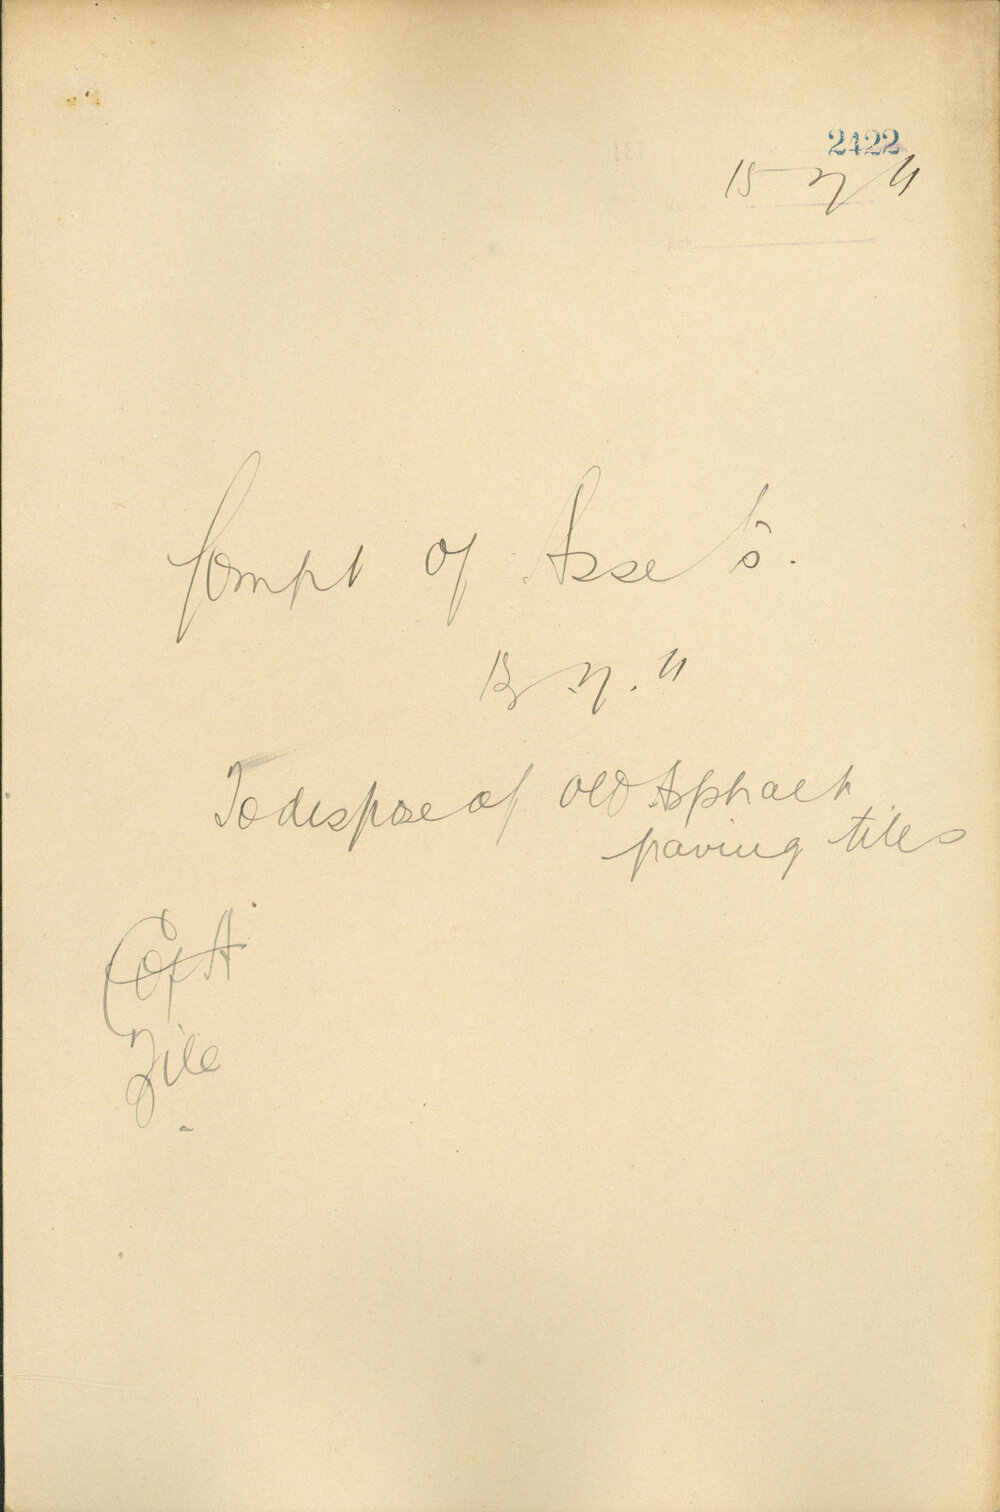 2422
15 7 11
Compt of Assets.
13 7. 11
To dispose of old Asphalt
paving tiles
C of A
File